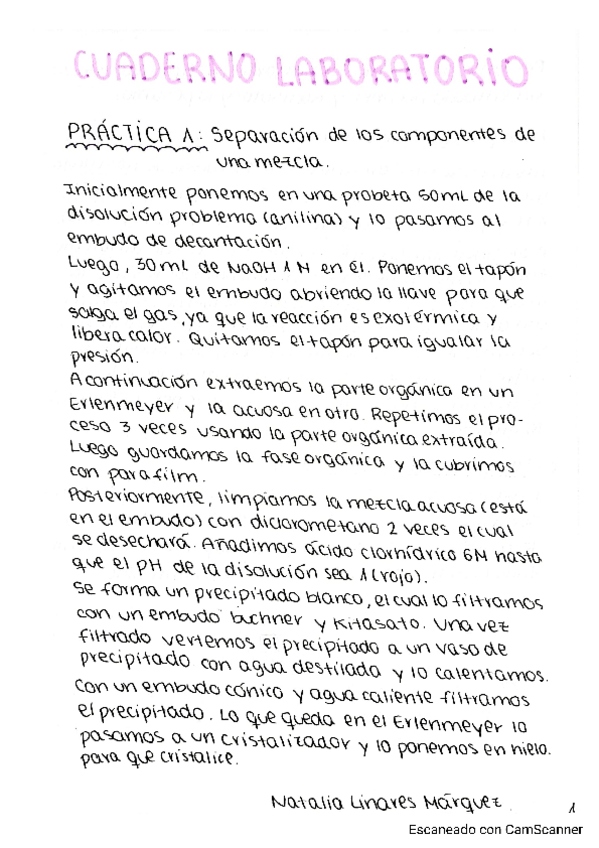 CUADERNO LABORATORIO
PRÁCTICA 1: Separación de los componentes de
una mezcla.
Inicialmente ponemos en una probeta 50mL de la
disolución problema (anilina) y lo pasamos al
embudo de decantación.
Luego, 30mL de NaOH 1N en él. Ponemos el tapón
y agitamos el embudo abriendo la llave para que
salga el gas, ya que la reacción es exotérmica y
libera calor. Quitamos el tapón para igualar la
presión.
A continuación extraemos la parte orgánica en un
Erlenmeyer y la acuosa en otro. Repetimos el pro-
ceso 3 veces usando la parte orgánica extraída.
Luego guardamos la fase orgánica y la cubrimos
con parafilm.
Posteriormente, limpiamos la mezcla acuosa (está
en el embudo) con diclorometano 2 veces el cual
se desechará. Añadimos ácido clorhídrico 6N hasta
que el pH de la disolución sea 1 (rojo).
Se forma un precipitado blanco, el cual lo filtramos
con un embudo buchner y Kitasato. Una vez
filtrado vertemos el precipitado a un vaso de
precipitado con agua destilada y lo calentamos.
Con un embudo cónico y agua caliente filtramos
el precipitado. Lo que queda en el Erlenmeyer lo
pasamos a un cristalizador y lo ponemos en hielo.
para que cristalice.
Natalia Linares Márquez
1
Escaneado con CamScanner